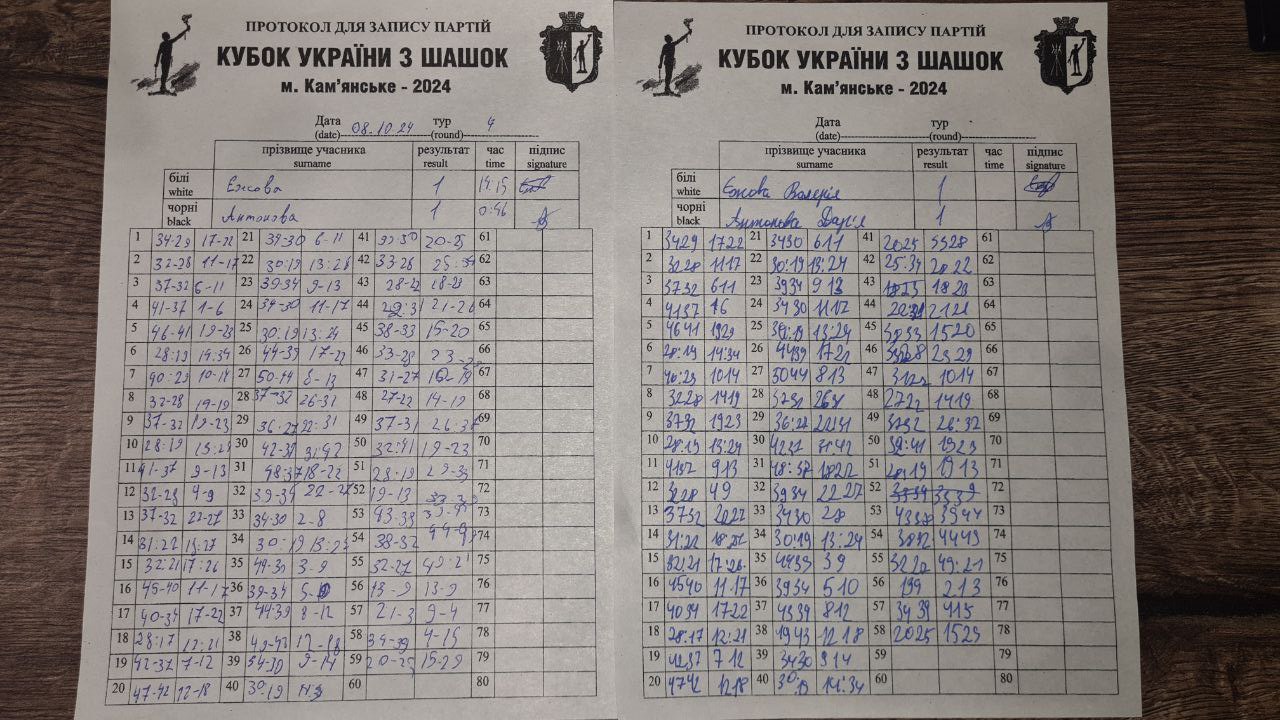 ПРОТОКОЛ ДЛЯ ЗАПИСУ ПАРТІЙ
КУБОК УКРАЇНИ З ШАШОК
м. Кам'янське - 2024
Дата 08.10.24 тур 4
(date) (round)
прізвище учасника результат час підпис
surname result time signature
білі Єжова 1 14:15
white
чорні Антонова 1 0:46
black
1 34-29 17-22 21 34-30 6-11 41 20-25 61
2 32-28 11-17 22 30:19 13:24 42 33-28 25:34 62
3 37-32 6-11 23 39-34 9-13 43 28-22 18-23 63
4 41-37 1-6 24 34-30 11-17 44 21-26 64
5 46-41 19-23 25 30:19 13:24 45 38-33 15-20 65
6 28:19 14:34 26 44-39 17-22 46 33-28 66
7 40:29 10-14 27 50-44 8-13 47 31-27 67
8 32-28 14-19 28 37-32 26-31 48 27-22 14-19 68
9 37-32 19-23 29 36:27 22:31 49 37-31 26:37 69
10 28:19 13:24 30 42-37 31:42 50 32:41 19-23 70
11 41-37 9-13 31 48:37 18-22 51 28:19 71
12 4-9 32 39-34 22-27 52 19-13 72
13 37-32 22-27 33 34-30 2-8 53 43-38 73
14 31:22 18:27 34 30:19 13:24 54 38-32 44-49 74
15 32:21 17:26 35 3-9 55 32-27 49:21 75
16 45-40 11-17 36 39-34 5-10 56 13-9 76
17 40-34 17-22 37 44-39 8-12 57 77
18 28:17 12:21 38 49-43 12-18 58 34-39 4-15 78
19 42-37 7-12 39 34-30 9-14 59 20-25 15-29 79
20 47-42 12-18 40 30:19 60 80
ПРОТОКОЛ ДЛЯ ЗАПИСУ ПАРТІЙ
КУБОК УКРАЇНИ З ШАШОК
м. Кам'янське - 2024
Дата тур
(date) (round)
прізвище учасника результат час підпис
surname result time signature
білі Єжова Валерія 1
white
чорні Антонова Дар'я 1
black
1 3429 1722 21 3430 611 41 2025 61
2 3228 1117 22 30:19 13:24 42 25:34 2822 62
3 3732 611 23 3934 913 43 1823 63
4 4137 16 24 3430 1117 44 2126 64
5 4641 1923 25 30:19 13:24 45 3833 1520 65
6 28:19 14:34 26 4439 1722 46 2329 66
7 40:29 1014 27 5044 813 47 1014 67
8 3228 1419 28 3732 2631 48 2722 1419 68
9 3732 1923 29 36:27 22:31 49 26:37 69
10 28:19 13:24 30 4237 31:42 50 1923 70
11 4137 913 31 48:37 1822 51 1913 71
12 3228 49 32 3934 2227 52 72
13 3732 2227 33 3430 28 53 4338 3944 73
14 31:22 18:27 34 30:19 13:24 54 3832 4449 74
15 32:21 17:26 35 39 55 49:21 75
16 4540 11:17 36 3934 510 56 139 213 76
17 4034 1722 37 4339 812 57 3439 415 77
18 28:17 12:21 38 4943 1218 58 2025 1529 78
19 4237 712 39 3430 914 59 79
20 4742 1218 40 30:19 14:34 60 80